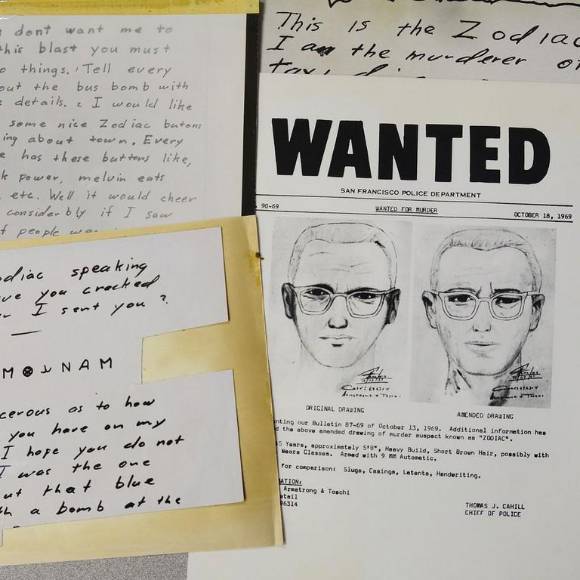 dont want me to
this blast you must
things. Tell every
out the bus bomb with
details. 2 I would like
some nice Zodiac butons
ing about town. Every
has these buttons like,
k power, melvin eats
etc. Well it would cheer
considerbly if I saw
people
This is the Zodiac
I am the murderer of
odiac speaking
ve you cracked
I sent you?
NAM
cerous as to how
you have on my
I hope you do not
I was the one
ut that blue
h a bomb at the
WANTED
SAN FRANCISCO POLICE DEPARTMENT
90-69 WANTED FOR MURDER OCTOBER 18, 1969
ORIGINAL DRAWING AMENDED DRAWING
nting our Bulletin 87-69 of October 13, 1969. Additional information has
d the above amended drawing of murder suspect known as "ZODIAC".
5 Years, approximately 5'8", Heavy Build, Short Brown Hair, possibly with
Wears Glasses. Armed with 9 MM Automatic.
for comparison: Slugs, Casings, Latents, Handwriting.
ATION:
Armstrong & Toschi
etail
96314
THOMAS J. CAHILL
CHIEF OF POLICE